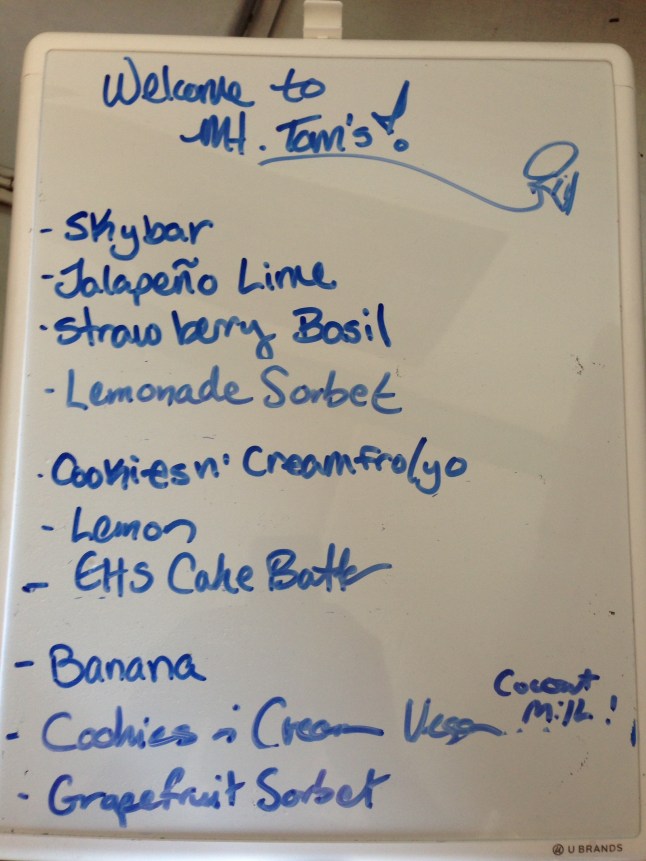 Welcome to
Mt. Tom's!
- Skybar
- Jalapeño Lime
- Strawberry Basil
- Lemonade Sorbet
- Cookies n' Cream fro/yo
- Lemon
- EHS Cake Batter
- Banana
- Cookies n Cream Vegan
Coconut
Milk!
- Grapefruit Sorbet
U BRANDS